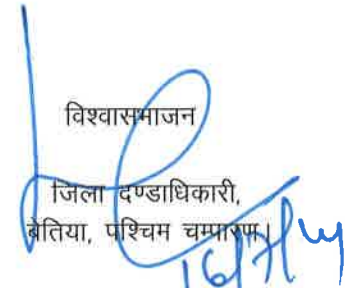 विश्वासभाजन
जिला दण्डाधिकारी,
बेतिया, पश्चिम चम्पारण।